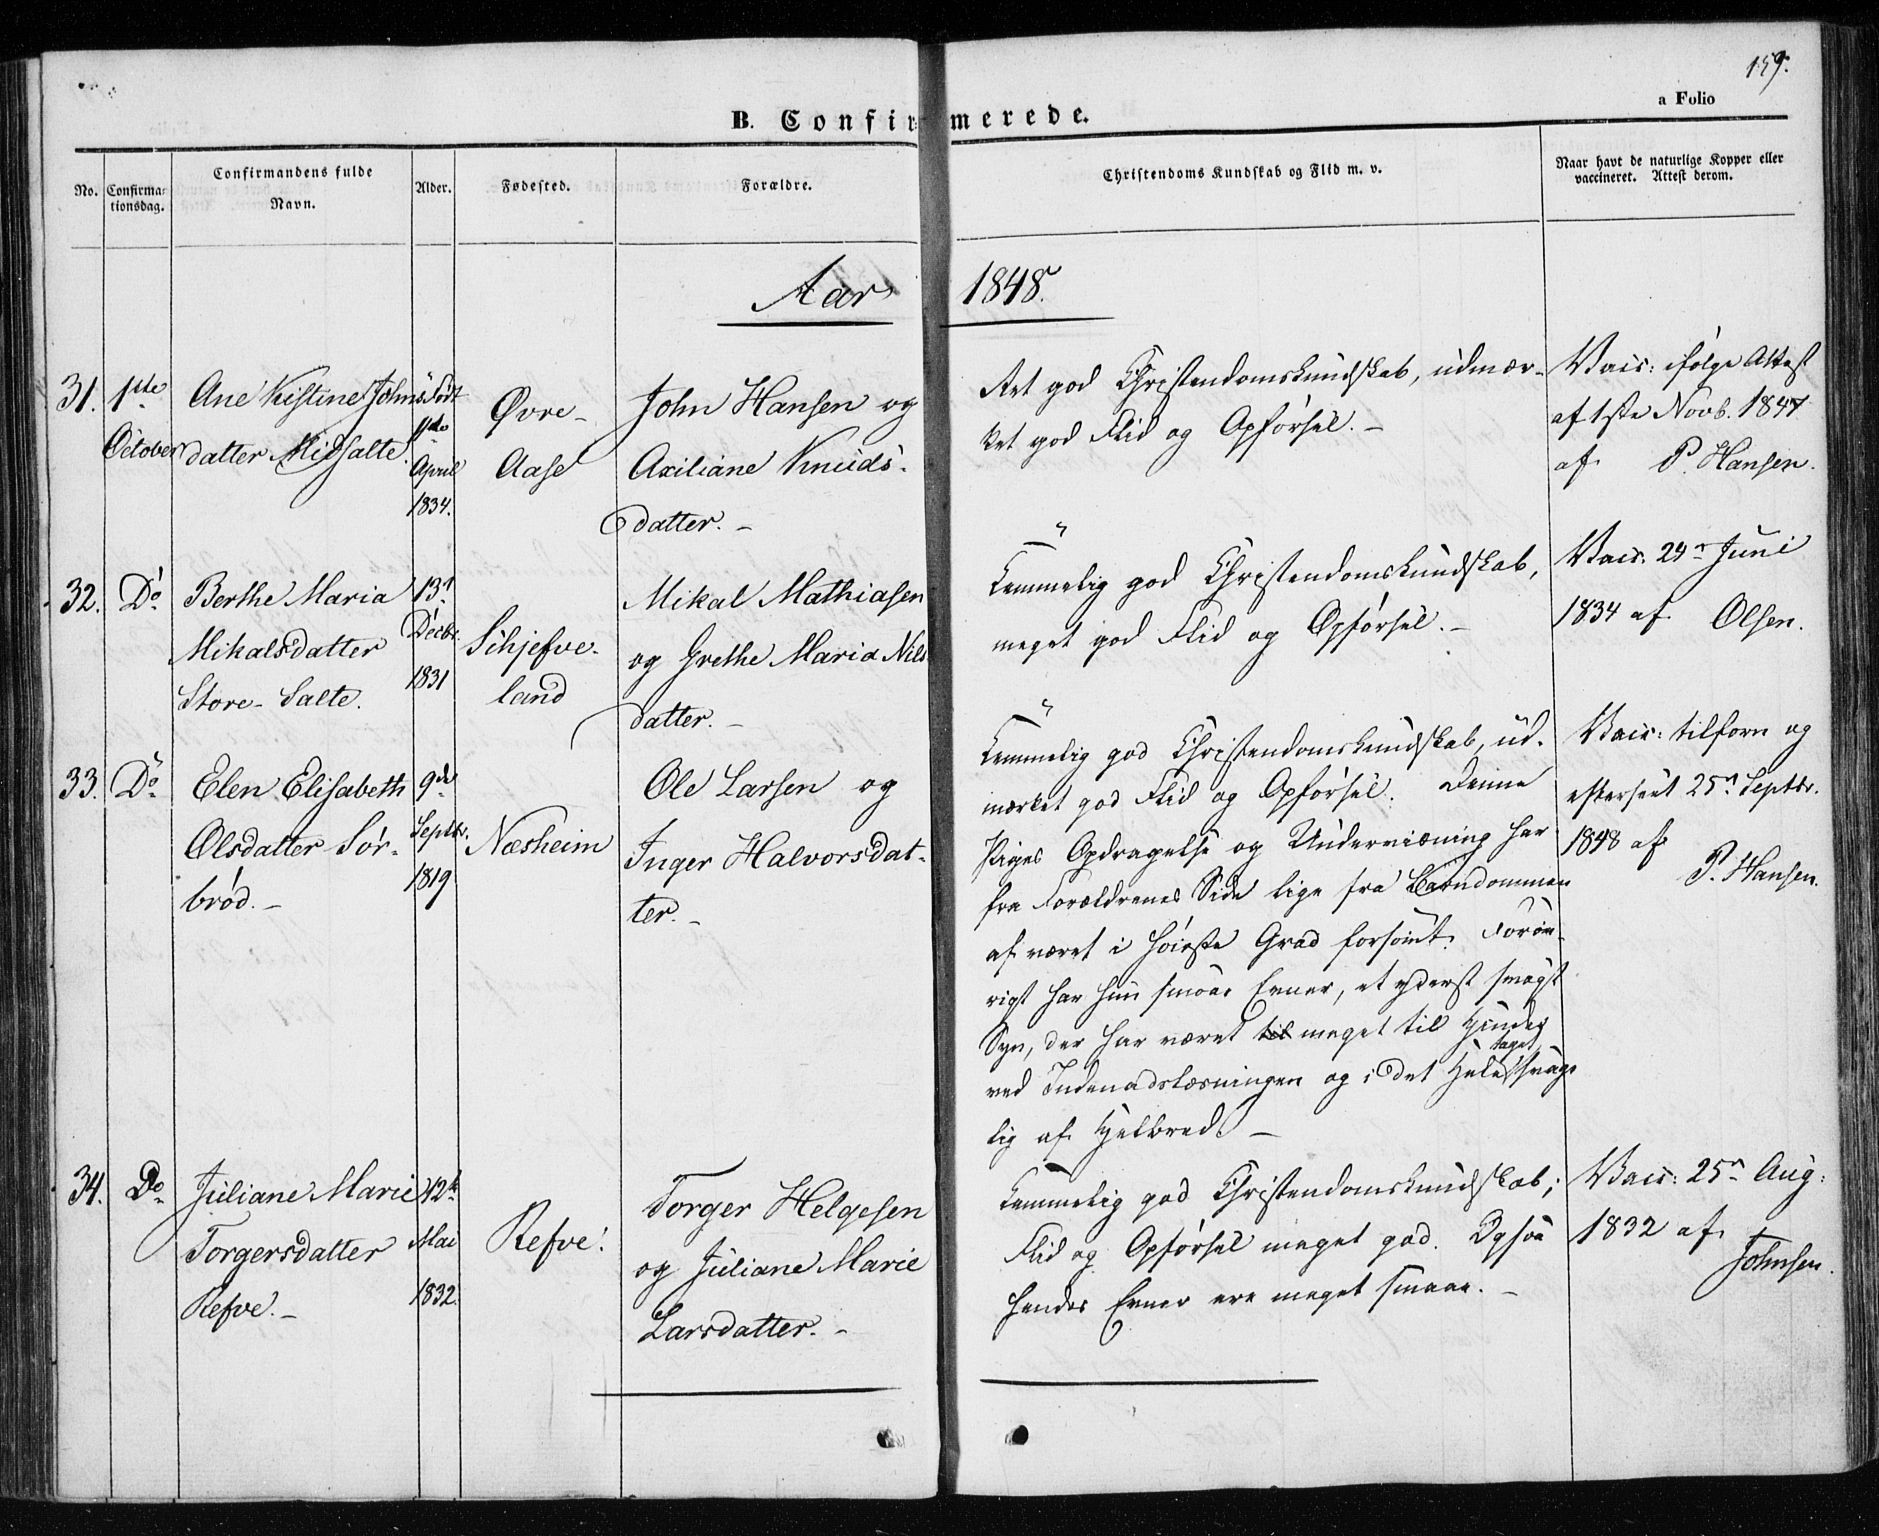 159.
a Folio
B. Confirmerede.
No.
Confirma-
tionsdag.
Confirmandens fulde
Navn.
Alder.
Fødested.
Forældre.
Christendoms Kundskab og Flid m. v.
Naar havt de naturlige Kopper eller
vaccineret. Attest derom.
Aar 1848.
31.
1ste
October
Ane Kistine Johns-
datter Midsalte.
Født
April
1834.
Øvre-
Aase
John Hansen og
Axiliane Knuds-
datter. -
Ret god Christendomskundskab, udmær-
ket god Flid og Opførsel. -
Vacc: ifølge Attest
af 1ste Novb. 1847
af P. Hansen.
32.
Do
Berthe Maria
Mikalsdatter
Store-Salte.
13d
Decbr.
1831
Sihjefve-
land
Mikal Mathiasen
og Grethe Maria Nils
datter. -
Temmelig god Christendomskundskab,
meget god Flid og Opførsel. -
Vacc. 24n Juni
1834 af Olsen.
33.
Do
Elen Elisabeth
Olsdatter Sør-
brød. -
9de
Septbr.
1819
Næsheim
Ole Larsen og
Inger Halvorsdat-
ter. -
Temmelig god Christendomskundskab, ud-
mærket god Flid og Opførsel. Denne
Piges Opdragelse og Underviisning har
fra Forældrenes Side lige fra Barndommen
af været i høieste Grad forsømt. Forøv-
rigt har hun smaae Evner, et yderst svagt
Syn, der har været til meget til Hinder
ved Indenadslæsningen og i det Hele taget svage
lig af Helbred. -
Vacc: tilforn og
efterseet 25n Septbr.
1848 af
P. Hansen.
34.
Do
Juliane Marie
Torgersdatter
Refve. -
12te
Mai
1832.
Refve.
Torger Helgesen
og Juliane Marie
Larsdatter. -
Temmelig god Christendomskundskab;
Flid og Opførsel meget god. Ogsaa
hendes Evner ere meget smaae. -
Vacc: 25n Aug:
1832 af
Johnsen.